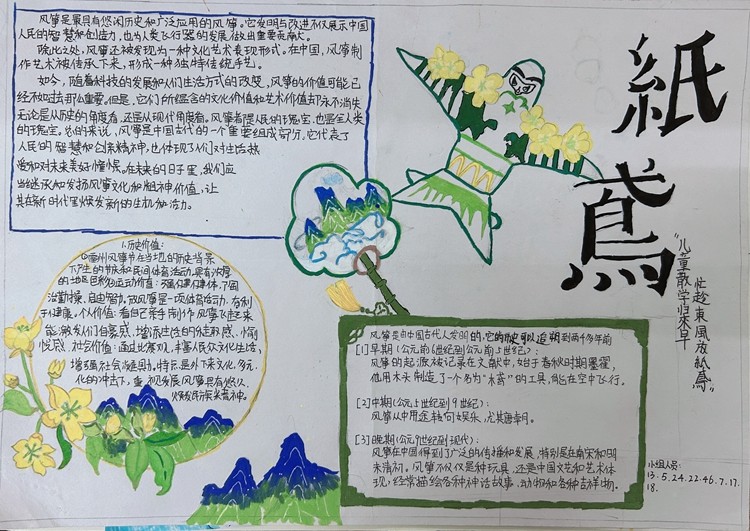 风筝是最具有悠闲历史和广泛应用的风筝。它发明与改进不仅展示中国
人民的智慧和创造力,也为人类飞行器的发展做出重要贡献。
除此之处,风筝还被发现为一种文化艺术表现形式。在中国,风筝制
作艺术被传承下来,形成一种独特传统手艺。
如今,随着科技的发展和人们生活方式的改变,风筝的价值可能已
经不如过去那么重要。但是,它们所蕴含的文化价值和艺术价值却永不消失
无论是从历史的角度看,还是从现代角度看。风筝者是人民的瑰宝,也是全人类
的瑰宝。总的来说,风筝是中国古代的一个重要组成部分。它代表了
人民的智慧和创新精神,也体现了人们对生活热
爱和对未来美好憧憬。在未来的日子里,我们应
当继承和发扬风筝文化和精神价值,让
其在新时代里焕发新的生机和活力。
紙鳶
"儿童散学归来早
忙趁東風放紙鳶"
1.历史价值:
风筝节在当地的历史背景
下产生的节庆和民间体育活动,具有浓厚
的地区色彩。运动价值:强健身体,巩固
治勤操、自由驱动,放风筝是一项体育活动,有利
于健康。个人价值:看自己亲手制作风筝飞起来
能激发人们自豪感,增添生性的依赖感、愉
悦感。社会价值:通过比赛观,丰富人民众文化生活,
增强社会凝固力。特别是外下来文化多元
化的冲击下,重视发展风筝具有悠久
风筝是由中国古代人发明的,它的历史可以追朔到两千多年前
[1]早期(公元前6世纪到公元前5世纪):
风筝的起源被记录在文献中,始于春秋时期墨翟,
他用木头制造了个名为"木鸢"的工具,能在空中飞行。
[2]中期(公元5世纪到9世纪):
风筝从中用途转向娱乐,尤其唐年间。
[3]晚期(公元9世纪到现代):
风筝在中国得到了广泛的传播和发展,特别是在南宋和明
末清初。风筝不仅仅是种玩具,还是中国文艺和艺术体
现,经常描绘各种神话故事、动物和各种吉祥物。
小组人员:
13.5.24.22.46.7.17.
18.